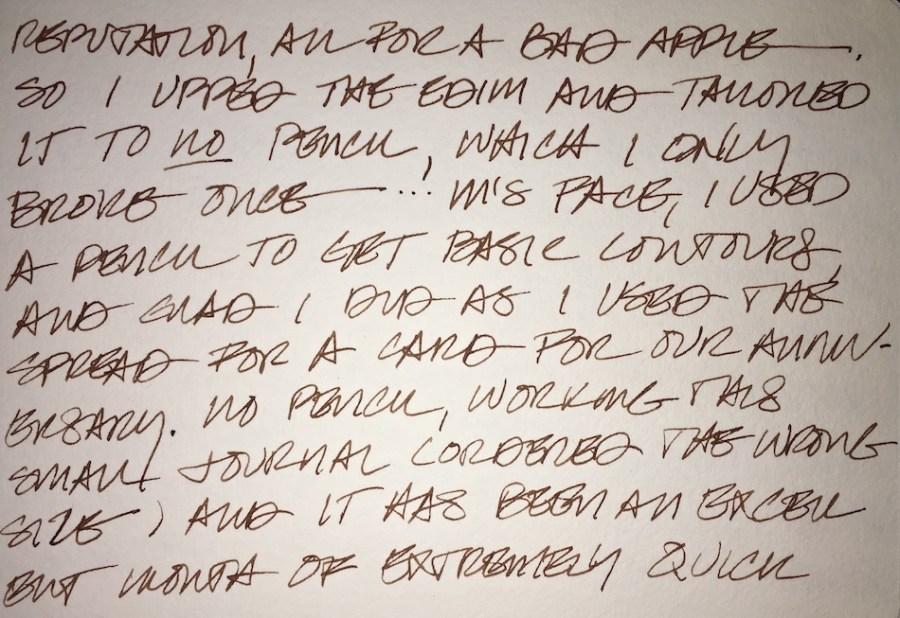 REPUTATION, ALL FOR A BAD APPLE—.
SO I UPPED THE EDIM AND TAILORED
IT TO NO PENCIL, WHICH I ONLY
BROKE ONCE—...! M'S FACE, I USED
A PENCIL TO GET BASIC CONTOURS,
AND GLAD I DID AS I USED THE
SPREAD FOR A CARD FOR OUR ANNIV-
ERSARY. NO PENCIL, WORKING THIS
SMALL JOURNAL (ORDERED THE WRONG
SIZE) AND IT HAS BEEN AN EXCELL
ENT MONTH OF EXTREMELY QUICK